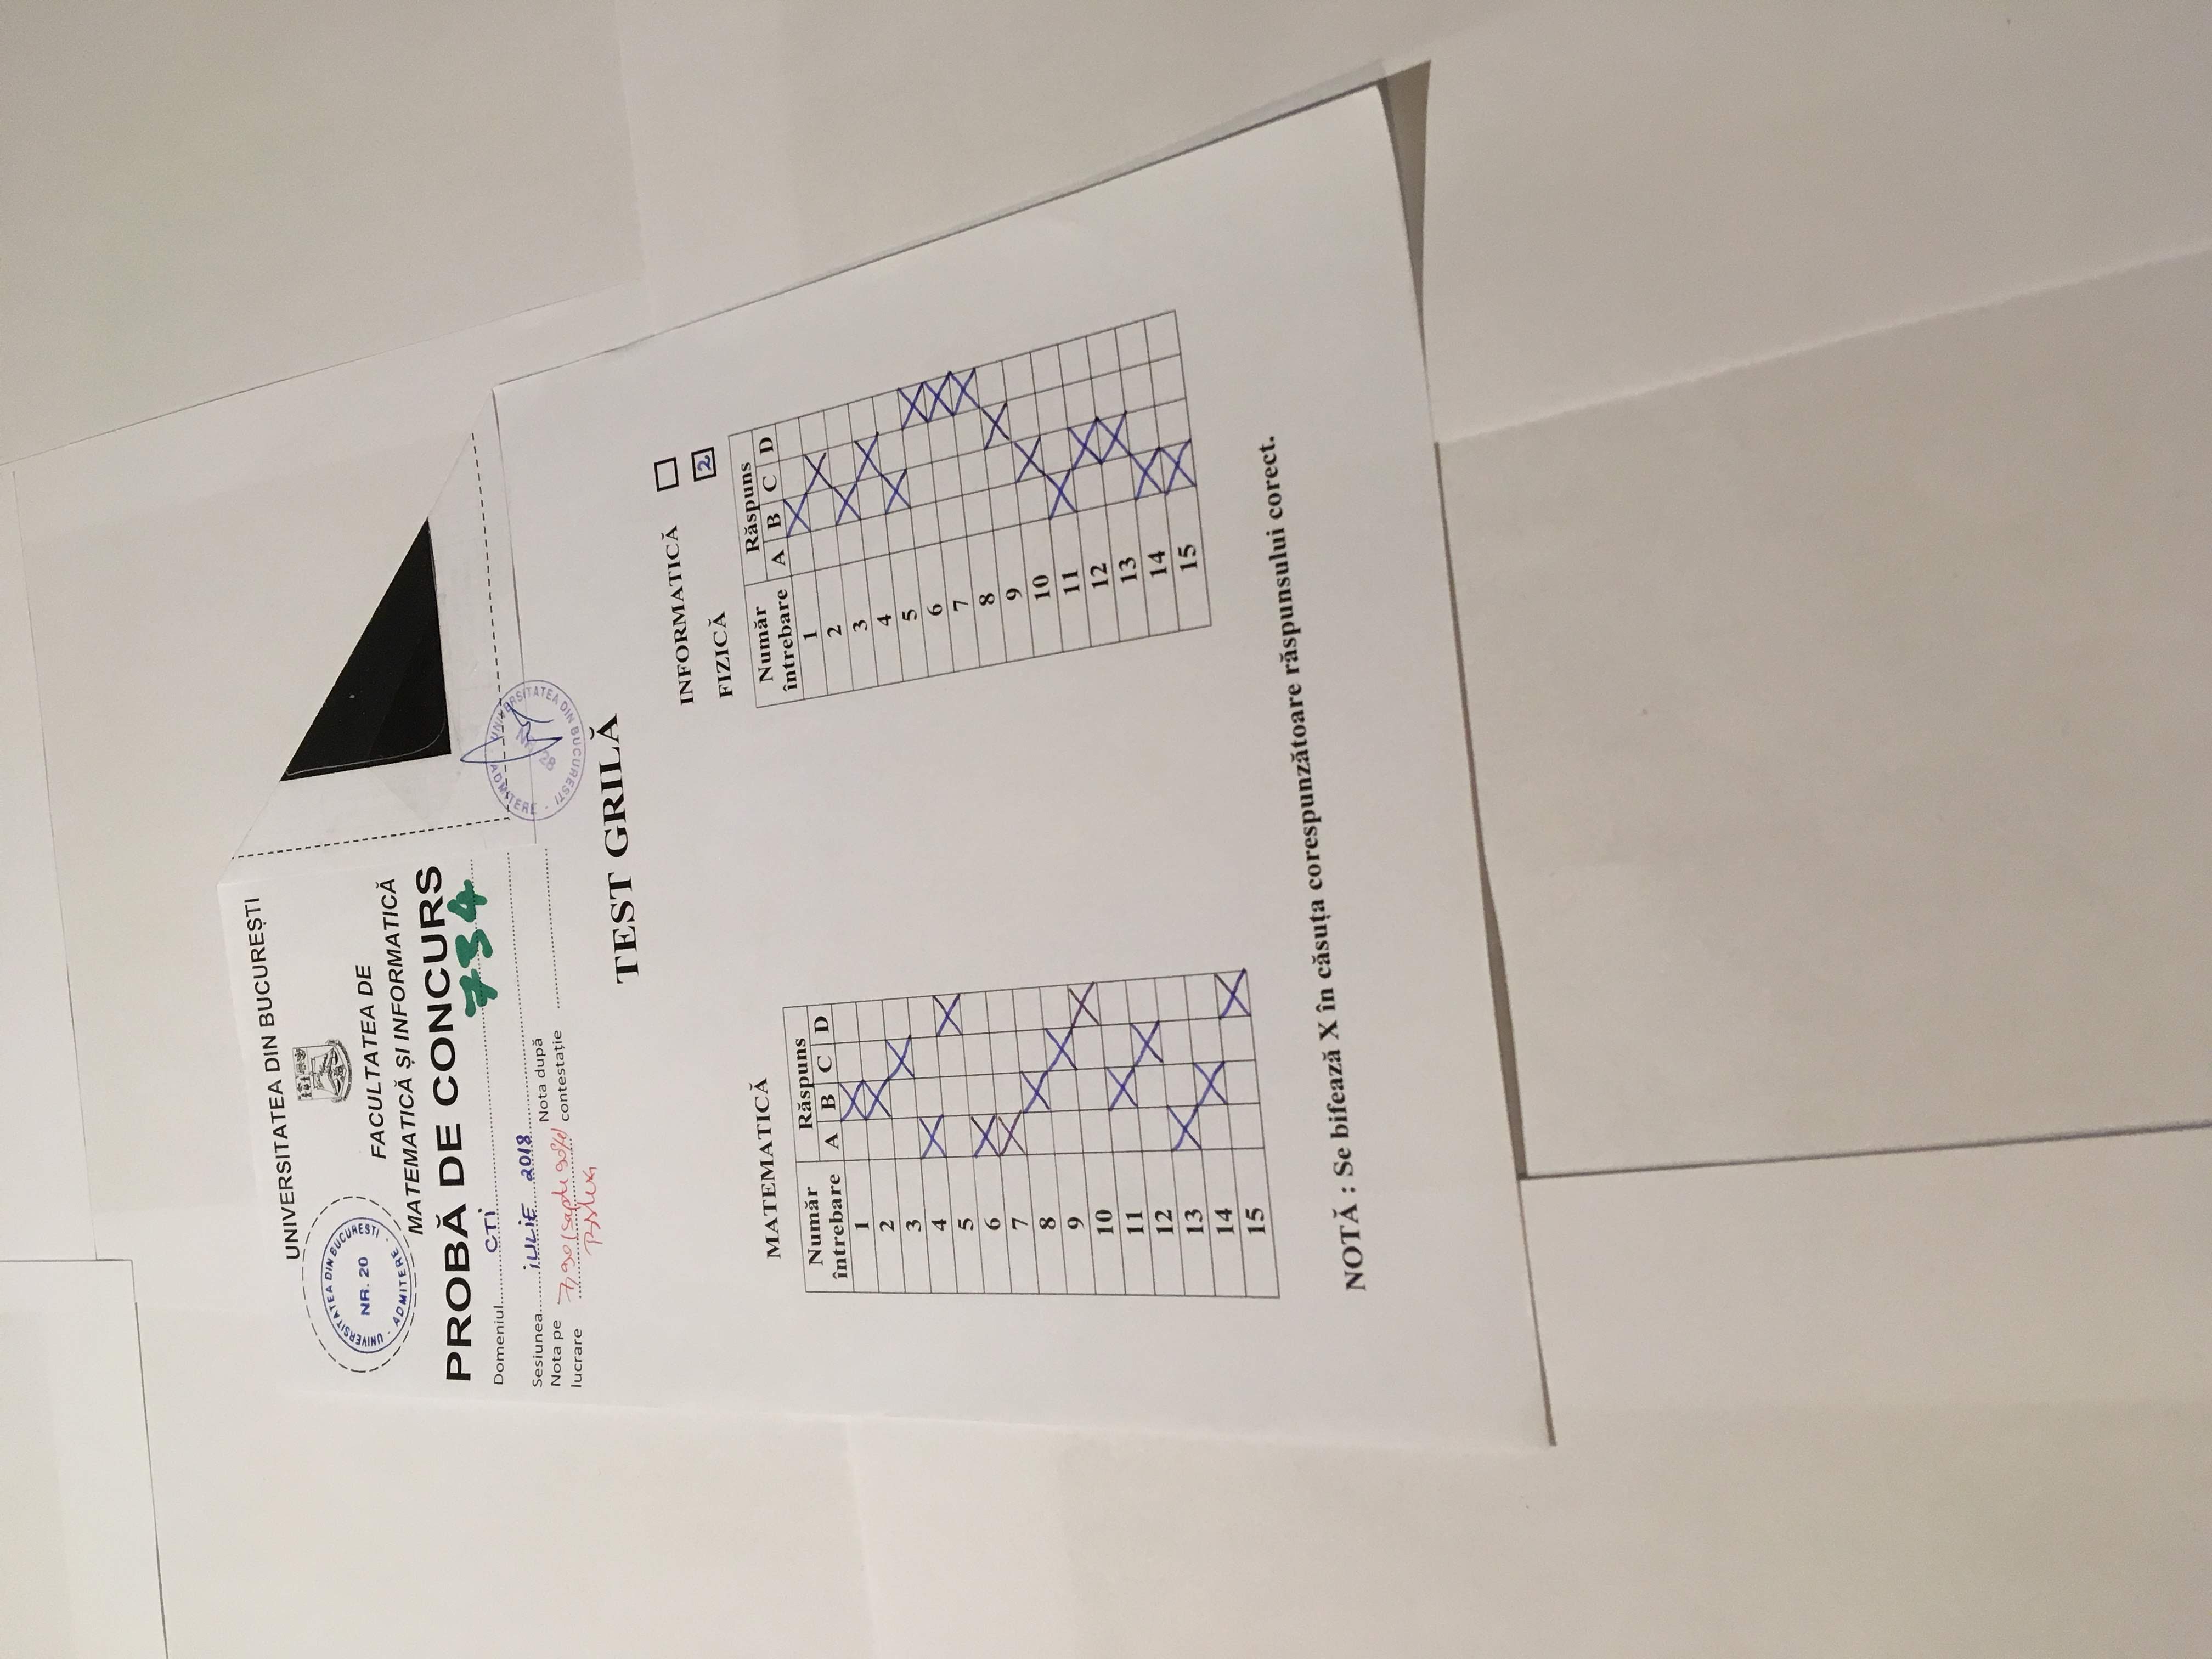 UNIVERSITATEA DIN BUCUREȘTI
UNIVERSITATEA DIN BUCUREȘTI · ADMITERE ·
NR. 20
FACULTATEA DE
MATEMATICĂ ȘI INFORMATICĂ
PROBĂ DE CONCURS
734
Domeniul CTi
Sesiunea iULiE 2018
Nota pe lucrare 7,90 (șapte 90%)
Nota după contestație
UNIVERSITATEA DIN BUCUREȘTI · ADMITERE ·
NR. 28
TEST GRILĂ
INFORMATICĂ
FIZICĂ 2
MATEMATICĂ
Număr întrebare Răspuns
A B C D
1 X
2 X
3 X
4 X
5 X
6 X
7 X
8 X
9 X
10 X
11 X
12 X
13 X
14 X
15 X
Număr întrebare Răspuns
A B C D
1 X
2 X
3 X
4 X
5 X
6 X
7 X
8 X
9 X
10 X
11 X
12 X
13 X
14 X
15 X
NOTĂ : Se bifează X în căsuța corespunzătoare răspunsului corect.